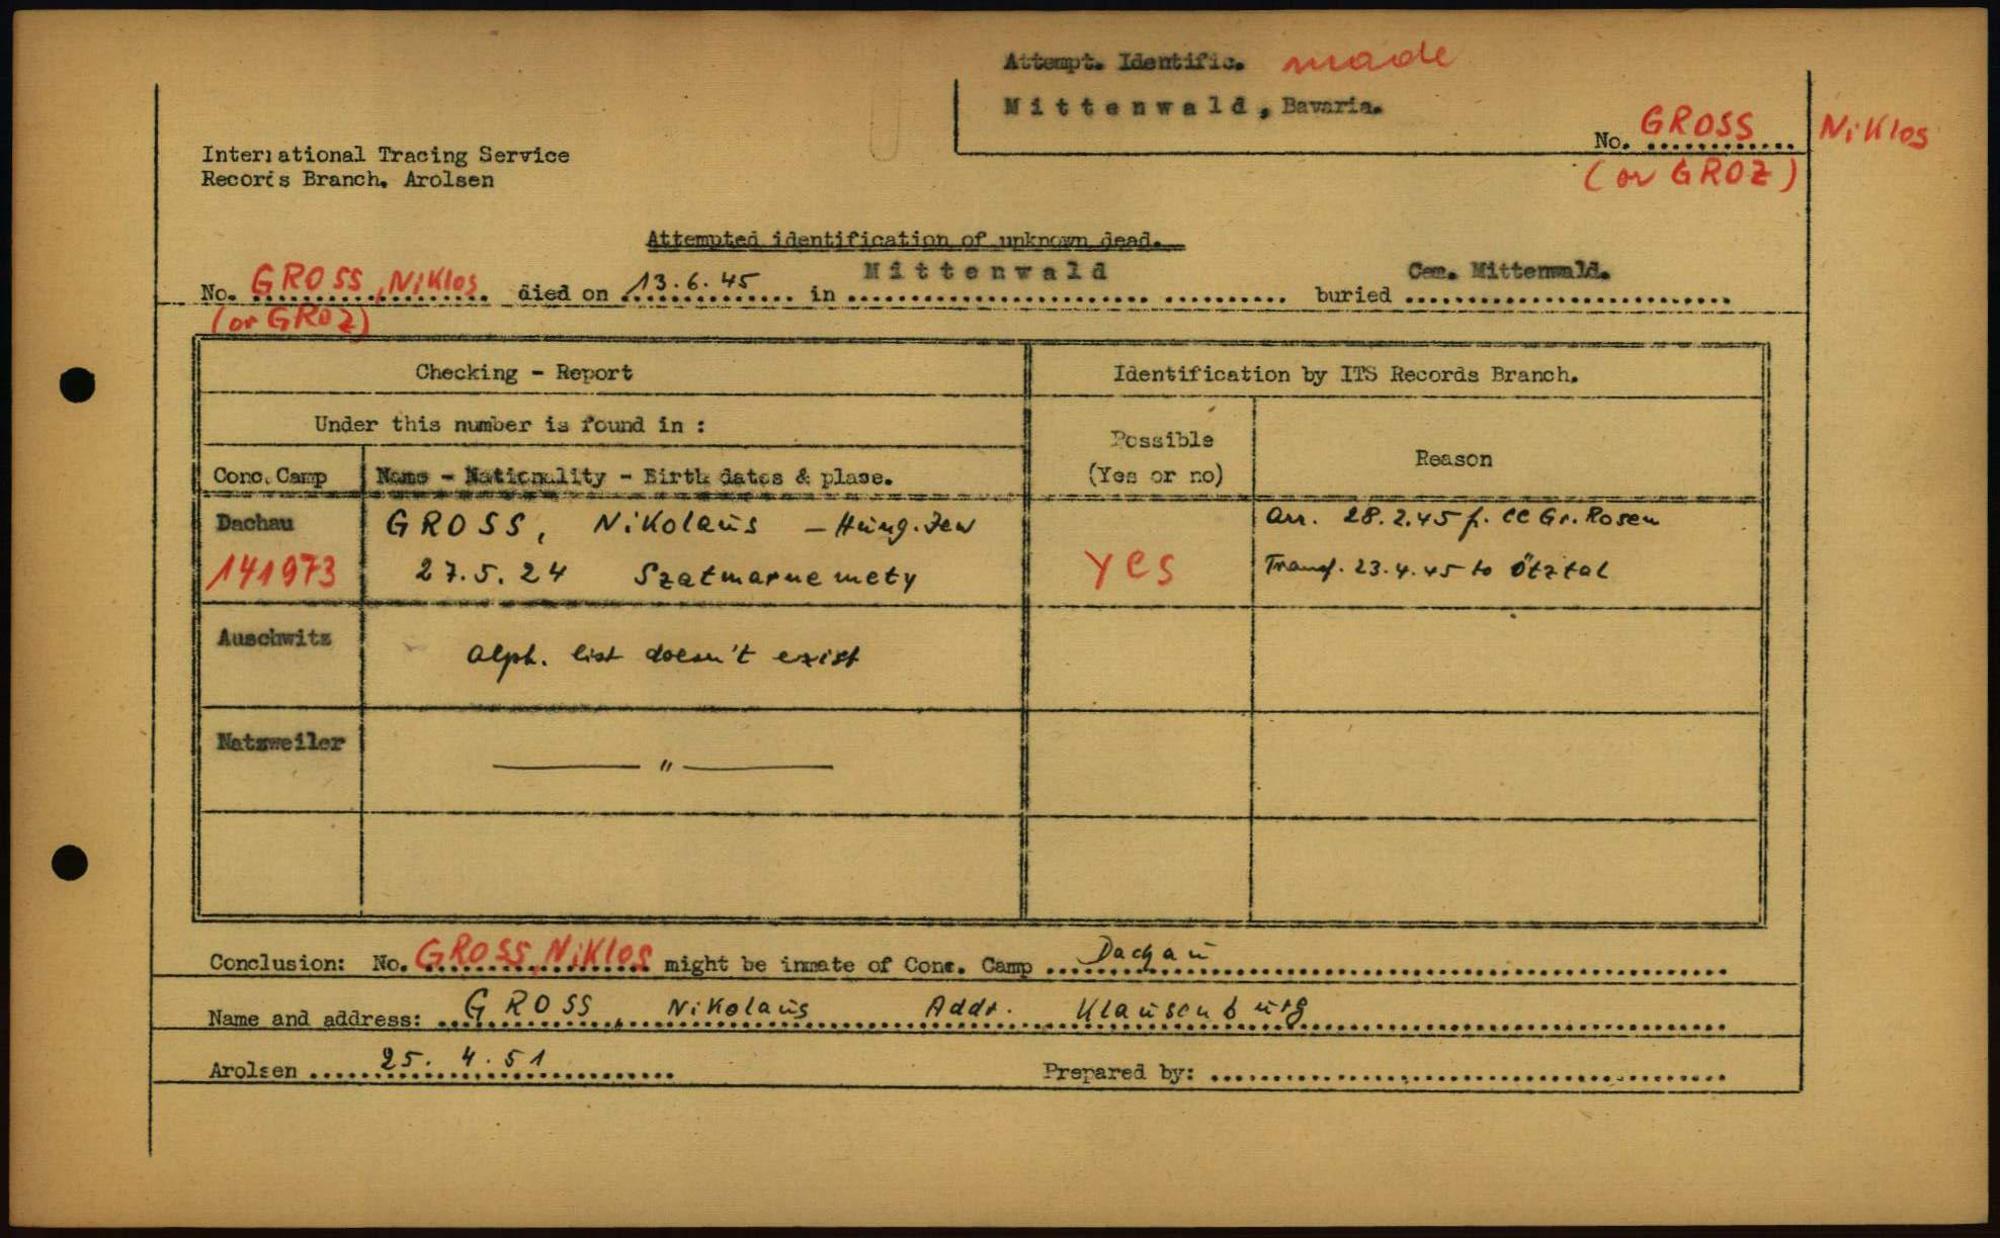 Attempt. Identific. made
Mittenwald, Bavaria.
No. GROSS Niklos
(or GROZ)
International Tracing Service
Records Branch. Arolsen
Attempted identification of unknown dead.
No. GROSS, Niklos died on 13.6.45 in Mittenwald buried Cem. Mittenwald.
(or GROZ)
Checking - Report
Identification by ITS Records Branch.
Under this number is found in :
Possible
(Yes or no)
Reason
Conc. Camp
Name - Nationality - Birth dates & place.
Dachau
141973
GROSS, Nikolaus - Hung. Jew
27.5.24 Szatmarnemety
yes
Arr. 28.2.45 f. CC Gr. Rosen
Transf. 23.4.45 to Ötztal
Auschwitz
Alph. list doesn't exist
Natzweiler
— " —
Conclusion: No. GROSS, Niklos might be inmate of Conc. Camp Dachau
Name and address: GROSS, Nikolaus Addr. Klausenburg
Arolsen 25. 4. 51 Prepared by: